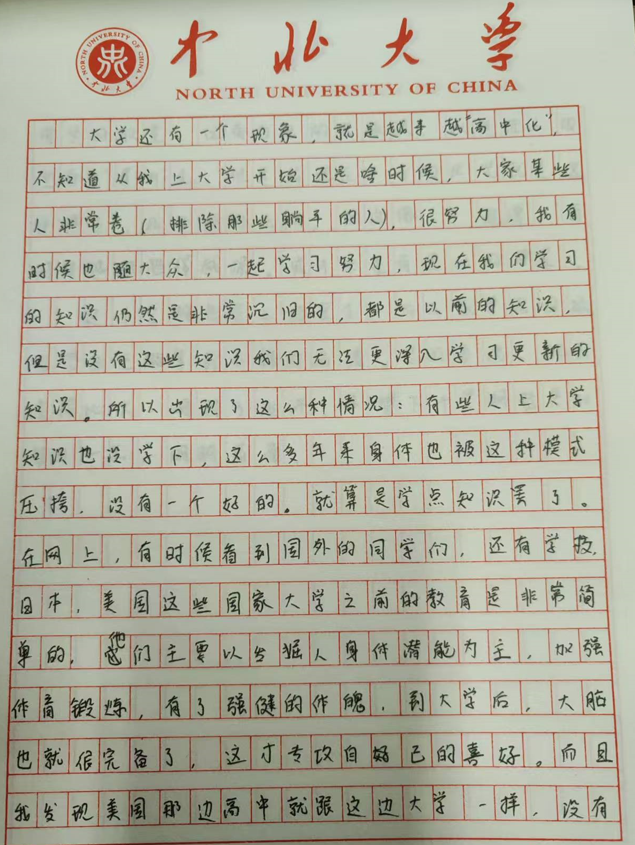 中北大学
NORTH UNIVERSITY OF CHINA
大学还有一个现象，就是越来越"高中化"，
不知道从我上大学开始还是啥时候，大家某些
人非常卷（排除那些躺平的人），很努力，我有
时候也随大众，一起学习努力，现在我们学习
的知识仍然是非常沉旧的，都是以前的知识，
但是没有这些知识我们无法更深入学习更新的
知识。所以出现了这么种情况：有些人上大学
知识也没学下，这么多年来身体也被这种模式
压垮，没有一个好的。就算是学点知识罢了。
在网上，有时候看到国外的同学们，还有学校，
日本，美国这些国家大学之前的教育是非常简
单的，他们主要以发掘人身体潜能为主，加强
体育锻炼，有了强健的体魄，到大学后，大脑
也就很完备了，这才专攻自好己的喜好。而且
我发现美国那边高中就跟这边大学一样，没有